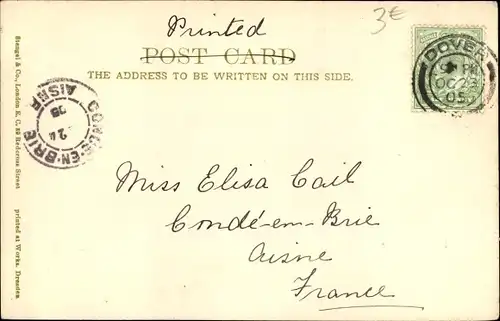 Printed
3€
POST CARD
THE ADDRESS TO BE WRITTEN ON THIS SIDE.
DOVER
PM
OC 23
05
CONDÉ-EN-BRIE
AISNE
24
05
Miss Elisa Cail
Condé-en-Brie
Aisne
France
Stengel & Co., London E. C. 39 Redcross Street
printed at Works. Dresden